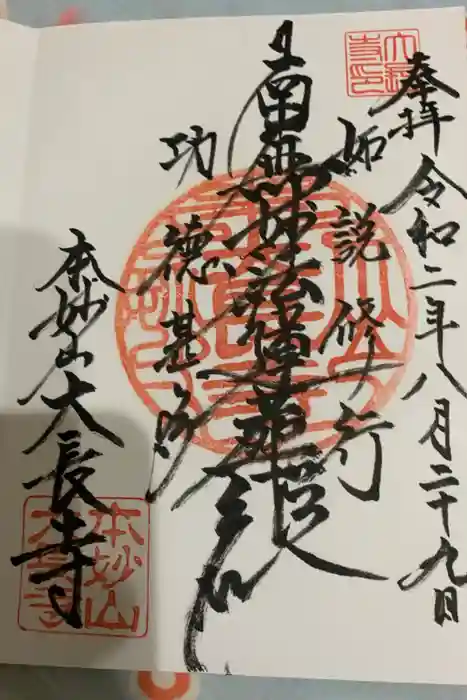 奉拝 令和二年八月二十九日
如説修行
南無妙法蓮華経
功徳甚多
本妙山大長寺
大長寺印
本妙山大長寺